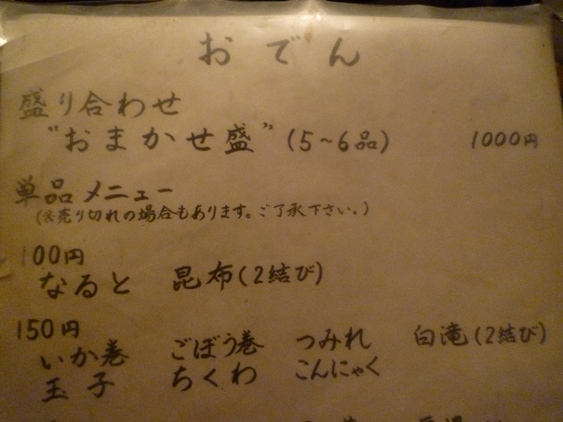 おでん
盛り合わせ
"おまかせ盛"(5~6品) 1000円
単品メニュー
(※売り切れの場合もあります。ご了承下さい。)
100円
なると 昆布(2結び)
150円
いか巻 ごぼう巻 つみれ 白滝(2結び)
玉子 ちくわ こんにゃく